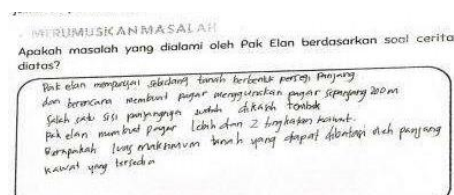 MERUMUSKAN MASALAH
Apakah masalah yang dialami oleh Pak Elan berdasarkan soal cerita
diatas?
Pak elan mempunyai sebidang tanah berbentuk persegi panjang
dan berencana membuat pagar menggunakan pagar sepanjang 200m
Salah satu sisi panjangnya sudah dikasih tembok
Pak elan membuat pagar lebih dan 2 tingkatan kawat.
Berapakah luas maksimum tanah yang dapat dibatasi oleh panjang
kawat yang tersedia